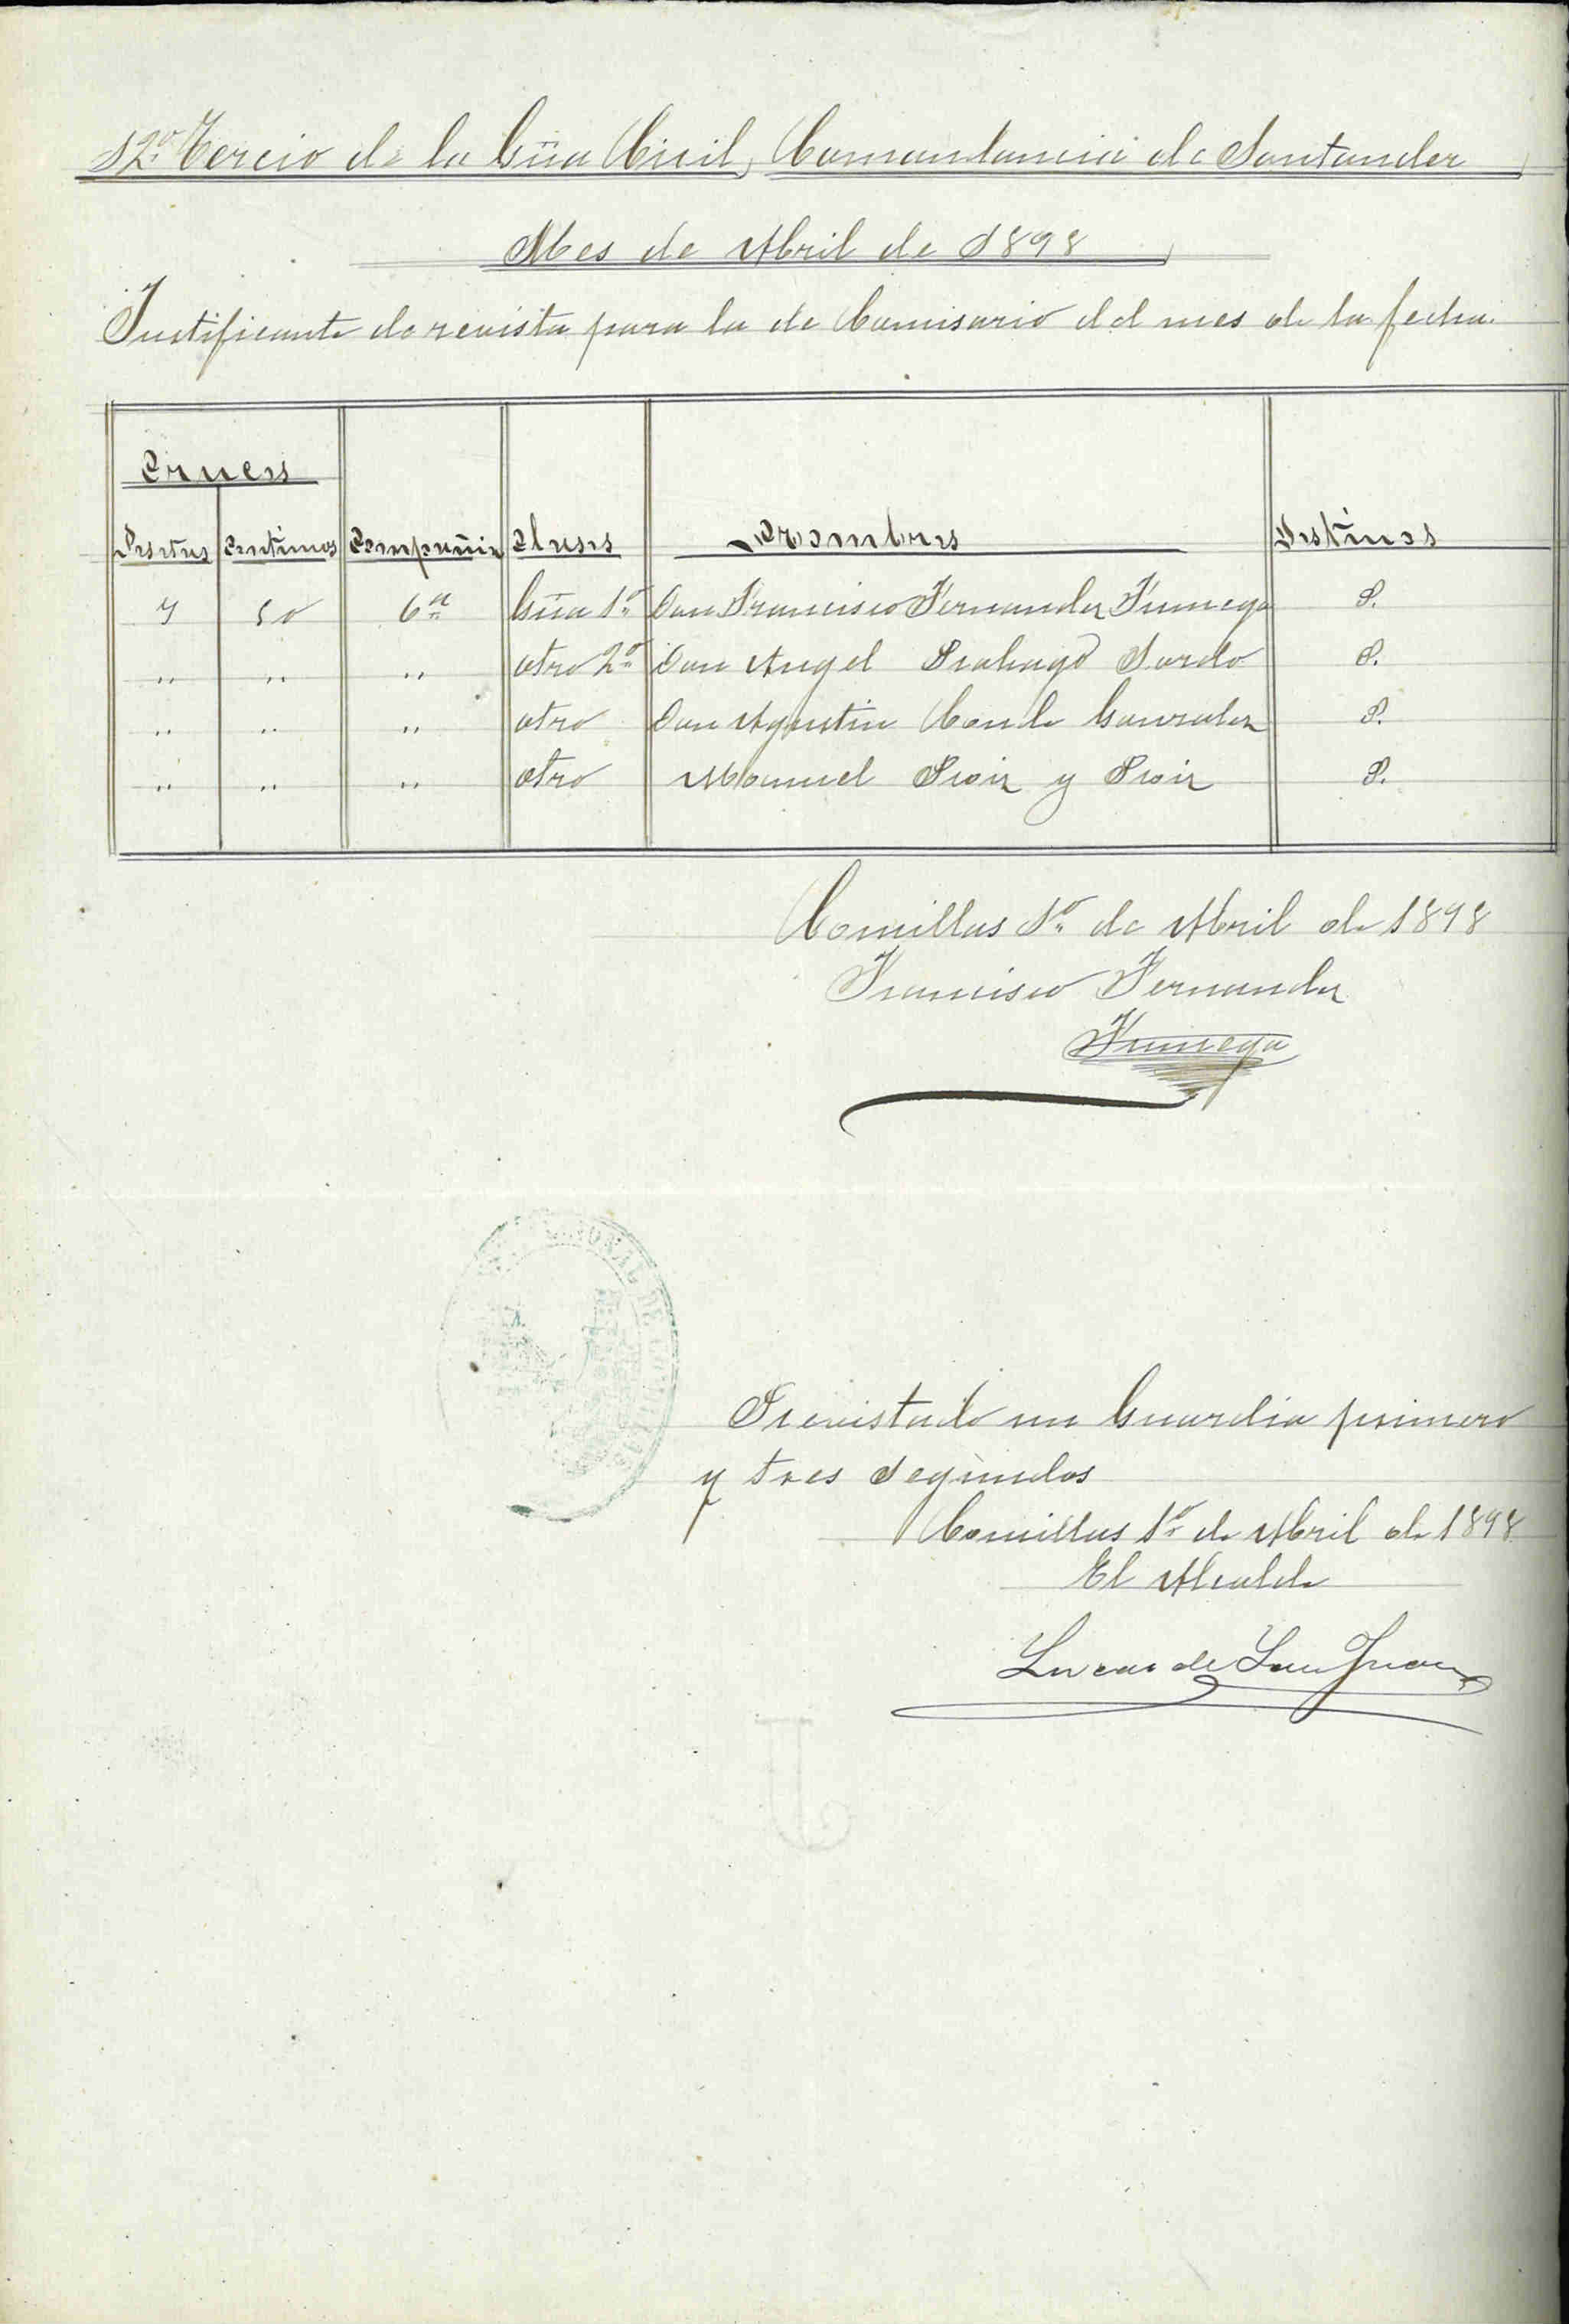 12º Tercio de la Güa Civil, Comandancia de Santander
Mes de Abril de 1898
Justificante de revista para la de Comisario del mes de la fecha.
Cruces
Pesetas Centimos Compañia Clases Nombres Destinos
7 50 6ª Güa 1º Don Francisco Fernandez Fumega P.
" " " otro 2º Don Angel Sardo P.
" " " otro Don Agustin Conde Gonzalez P.
" " " otro Manuel Ruiz y Ruiz P.
Comillas 1º de Abril de 1898
Francisco Fernandez
Fumega
Revistado un Guardia primero
y tres segundos
Comillas 1º de Abril de 1898
El Alcalde
Lucas de San Juan